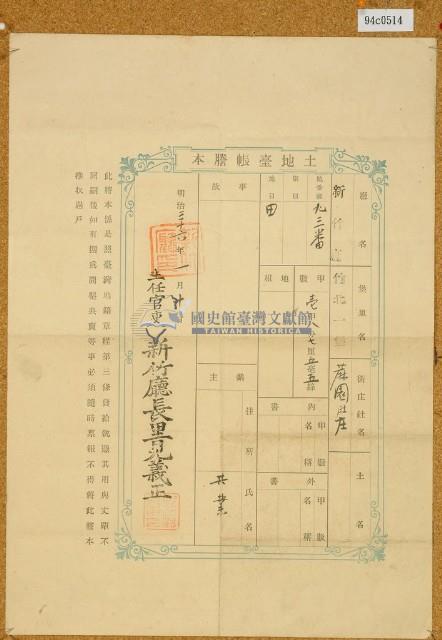 94c0514
土地臺帳謄本
廳名
堡里名
街庄社名
土名
新竹廳
竹北一堡
麻園肚庄
地番號
九三番
甲數
壹甲八分七厘五毫五絲
內書
甲數
名稱
外書
甲數
名稱
則別
地目
田
地租
事故
業主
住所
氏名
共業
明治三十六年一月
主任官吏
新竹廳長里見義正
此謄本係是照臺灣地籍章程第三條發給就憑其用與丈單不
同嗣後如有撥
賣等事必須隨時稟報不得將此謄本
推收過戶
國史館臺灣文獻館
TAIWAN HISTORICA